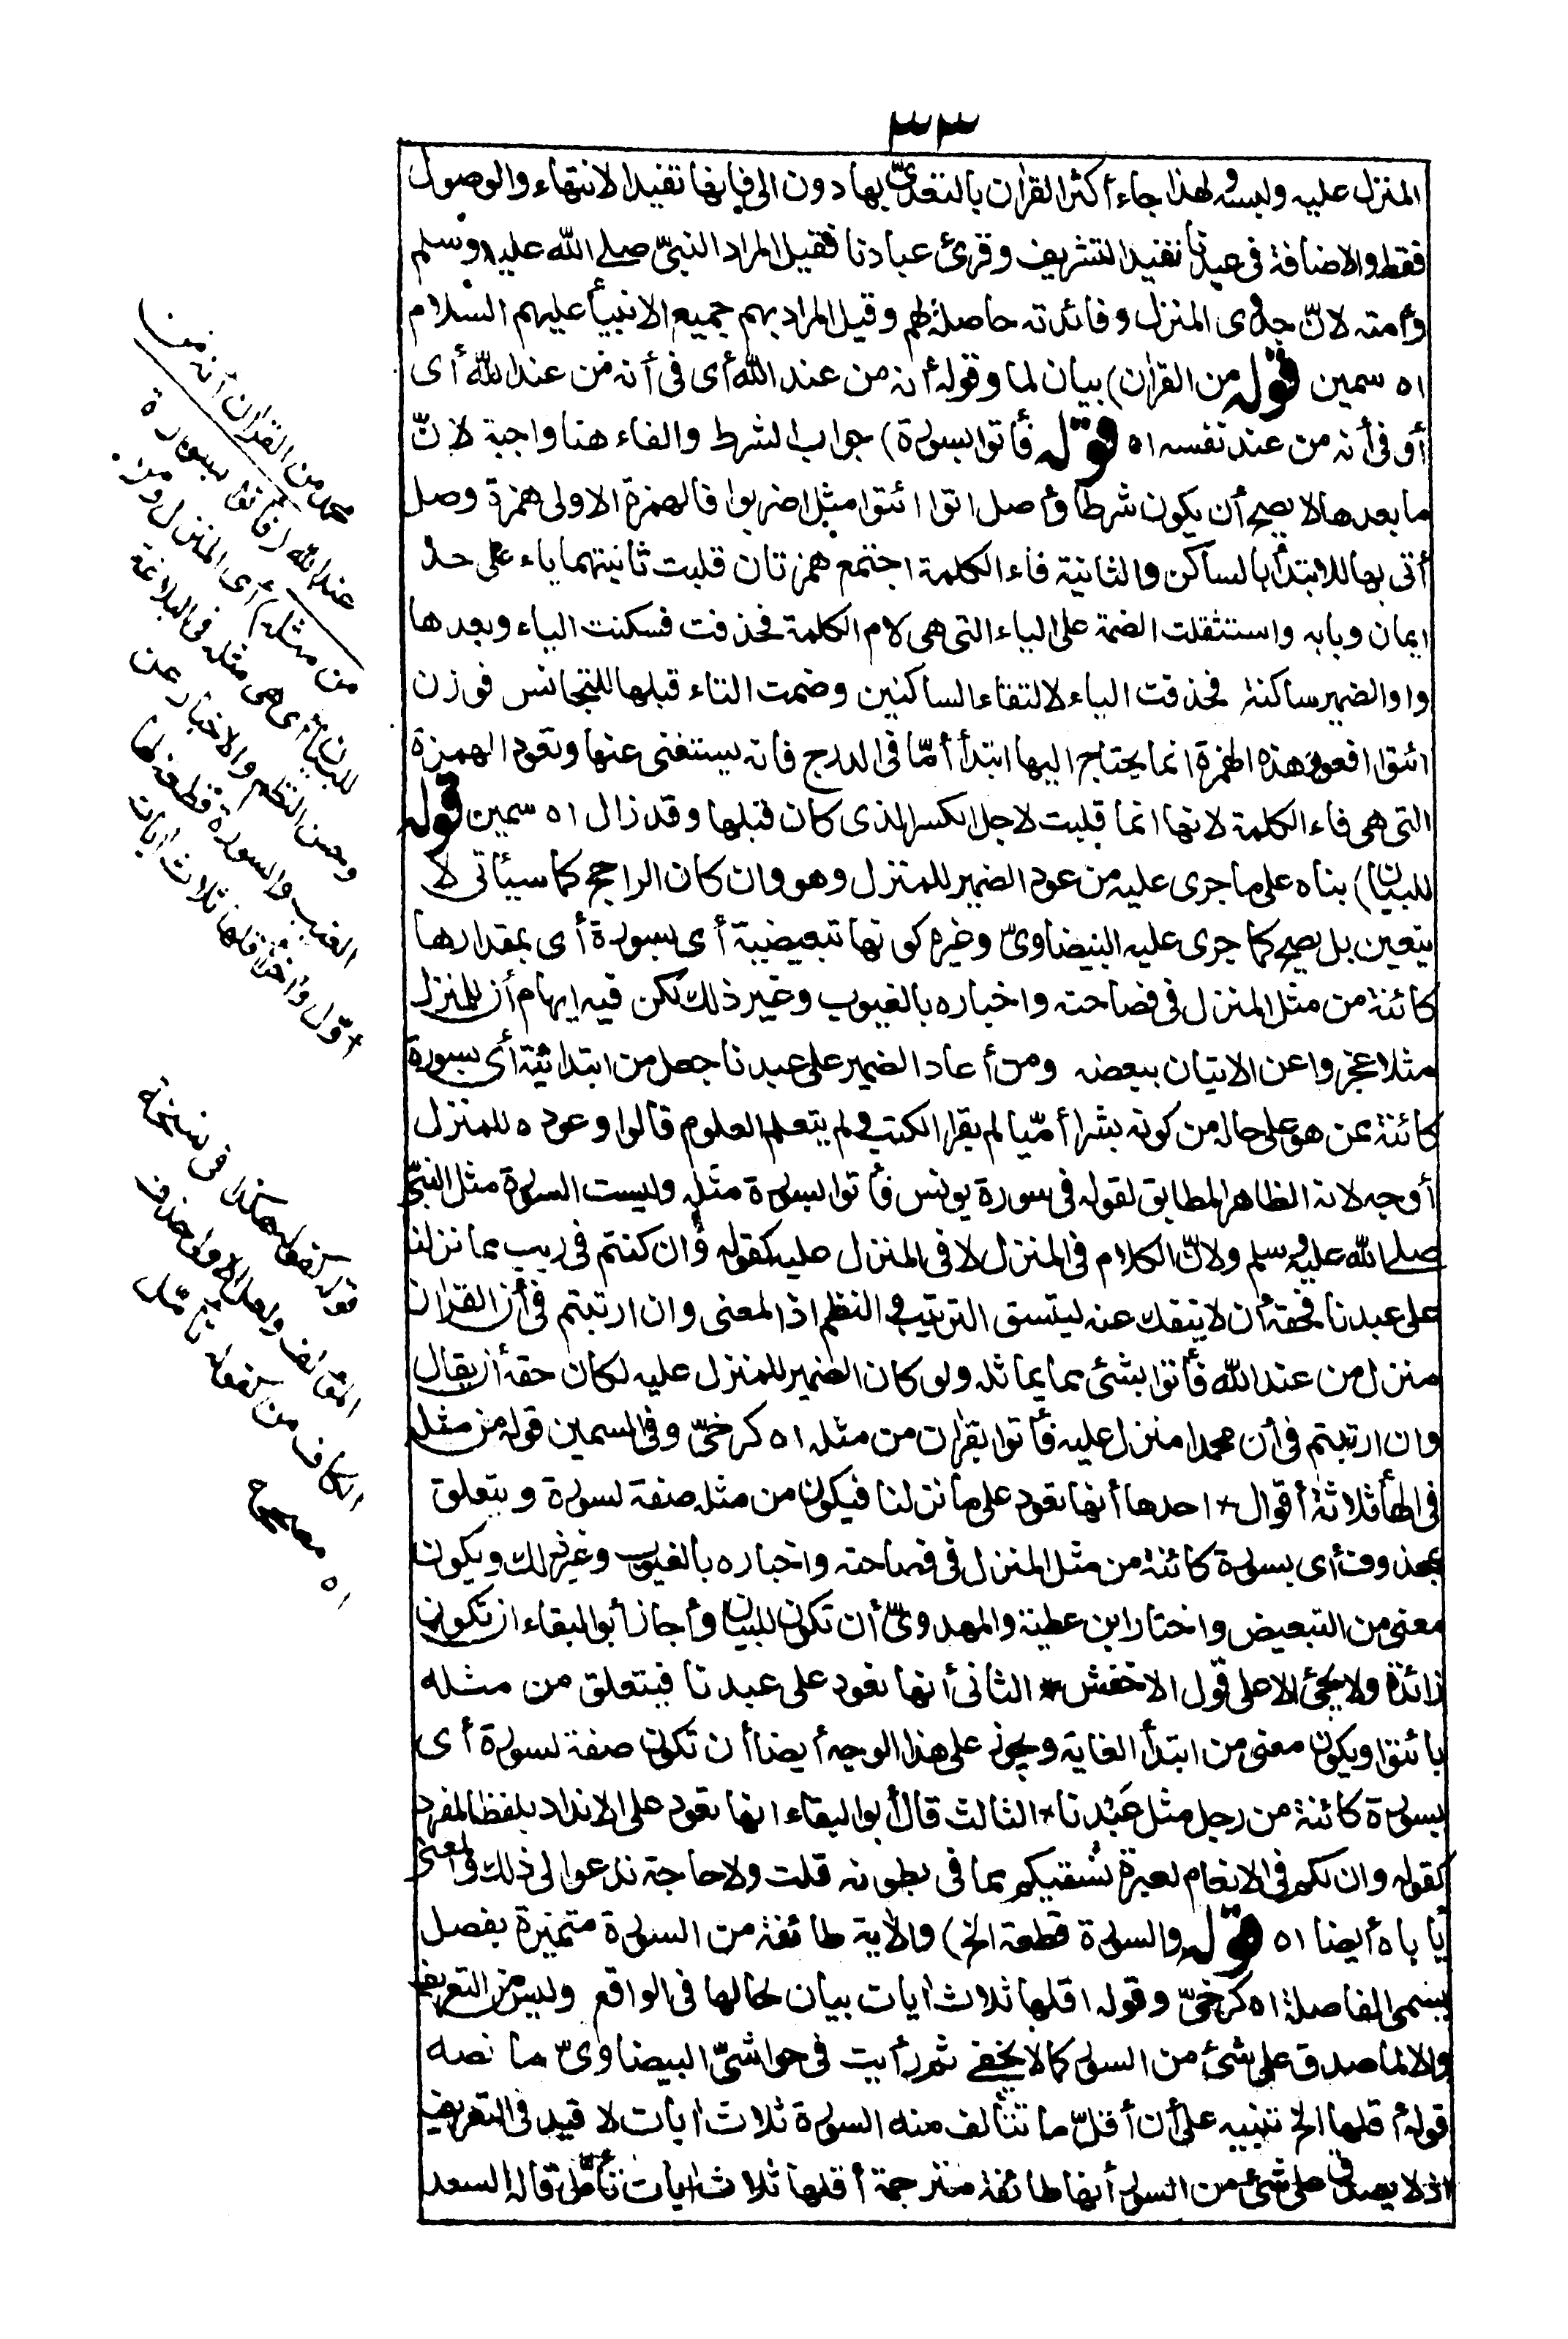 ٣٣
المنزل عليه وليسؤه لهذا جاء أكثر القرآن بالتعدّي بها دون الى فإنها تفيد الانتهاء والوصول
فقط والاضافة فى عبدنا تفيد التشريف وقرئ عبادنا فقيل المراد النبىّ صلى الله عليه وسلم
وأمته لانّ جدوى المنزل وفائدته حاصلة لهم وقيل المراد بهم جميع الانبيأ عليهم السلام
اه سمين قوله من القرآن) بيان لما وقوله أنه من عند الله أى فى أنه من عند الله أى
أو فى أنه من عند نفسه اه قوله فأتوا بسورة) جواب الشرط والفاء هنا واجبة لانّ
ما بعدها لا يصح أن يكون شرطا وأصل اتوا ائتوا مثل اضربوا فالهمزة الاولى همزة وصل
أتى بها للابتدأ بالساكن والثانية فاء الكلمة اجتمع همزتان قلبت ثانيتهما ياء على حد
ايمان وبابه واستثقلت الضمة على الياء التى هى لام الكلمة فحذفت فسكنت الياء وبعدها
واو الضمير ساكنة فحذفت الياء لالتقاء الساكنين وضمت التاء قبلها للتجانس فوزن
ائتوا افعوا وهذه الهمزة انما يحتاج اليها ابتدأ أمّا فى الدرج فانه يستغنى عنها وتعود الهمزة
التى هى فاء الكلمة لانها انما قلبت لاجل الكسر الذى كان قبلها وقد زال اه سمين قوله
للبيان) بناه على ما جرى عليه من عود الضمير للمنزل وهو وان كان الراجح كما سيأتى لا
يتعين بل يصح كما جرى عليه البيضاوىّ وغيره كونها تبعيضية أى بسورة أى بمقدارها
كائنة من مثل المنزل فى فصاحته واخباره بالغيوب وغير ذلك لكن فيه ايهام أن للمنزل
مثلا عجزوا عن الاتيان ببعضه ومن أعاد الضمير على عبدنا جعل من ابتدائية أى بسورة
كائنة عمن هو على حاله من كونه بشرا أمّيا لم يقرا الكتب ولم يتعلم العلوم قالوا وعوده للمنزل
أوجه لانه الظاهر المطابق لقوله فى سورة يونس فأتوا بسورة مثله وليست السورة مثل النبىّ
صلى الله عليه وسلم ولانّ الكلام فى المنزل لا فى المنزل عليه كقوله وان كنتم فى ريب مما نزلنا
على عبدنا فحقه أن لا ينفك عنه ليتسق الترتيب والنظم اذ المعنى وان ارتبتم فى أن القرآن
منزل من عند الله فأتوا بشئ مما يماثله ولو كان الضمير للمنزل عليه لكان حقه أن يقال
وان ارتبتم فى أن محمدا منزل عليه فأتوا بقرآن من مثله اه كرخىّ وفى السمين قوله من مثله
فى الهأ ثلاثة أقوال احدها أنها تعود على ما نزلنا فيكون من مثله صفة لسورة ويتعلق
بمحذوف أى بسورة كائنة من مثل المنزل فى فصاحته واخباره بالغيوب وغير ذلك ويكون
معنى من التبعيض واختار ابن عطية والمهدوىّ أن تكون للبيان وأجاز أبو البقاء ان تكون
زائدة ولا يجئ الا على قول الاخفش الثانى أنها تعود على عبدنا فيتعلق من مثله
بائتوا ويكون معنى من ابتدأ الغاية ويجوز على هذا الوجه أيضا أن تكون صفة لسورة أى
بسورة كائنة من رجل مثل عبدنا الثالث قال أبو البقاء انها تعود على الانداد بلفظ المفرد
كقوله وان لكم فى الانعام لعبرة نسقيكم مما فى بطونه قلت ولا حاجة تدعوا لى ذلك والمعنى
يأباه أيضا اه قوله والسورة قطعة الخ) والاية طائفة من السورة متميزة بفصل
يسمى الفاصلة اه كرخىّ وقوله اقلها ثلاث ايات بيان لحالها فى الواقع وليس من التعريف
والا لما صدق على شئ من السور كما لا يخفى ثم رأيت فى حواشىّ البيضاوىّ ما نصه
قوله أقلها الخ تنبيه على أن أقلّ ما تتألف منه السورة ثلاث ايات لا قيد فى التعريف
اذ لا يصدق على شئ من السور أنها طائفة مترجمة أقلها ثلاث ايات تأمّل قاله السعد
محمد من القرآن أنه من
عند الله (فأتوا بسورة
من مثله) أى المنزل ومن
للبيان أى هى مثله فى البلاغة
وحسن النظم والاخبار عن
الغيب والسورة قطعة لها
أوّل وآخر أقلها ثلاث ايات
قوله كقوله هكذا فى نسخة
المؤلف ولعل الاولى حذف
الكاف من كقوله تأمّل
اه مصححه